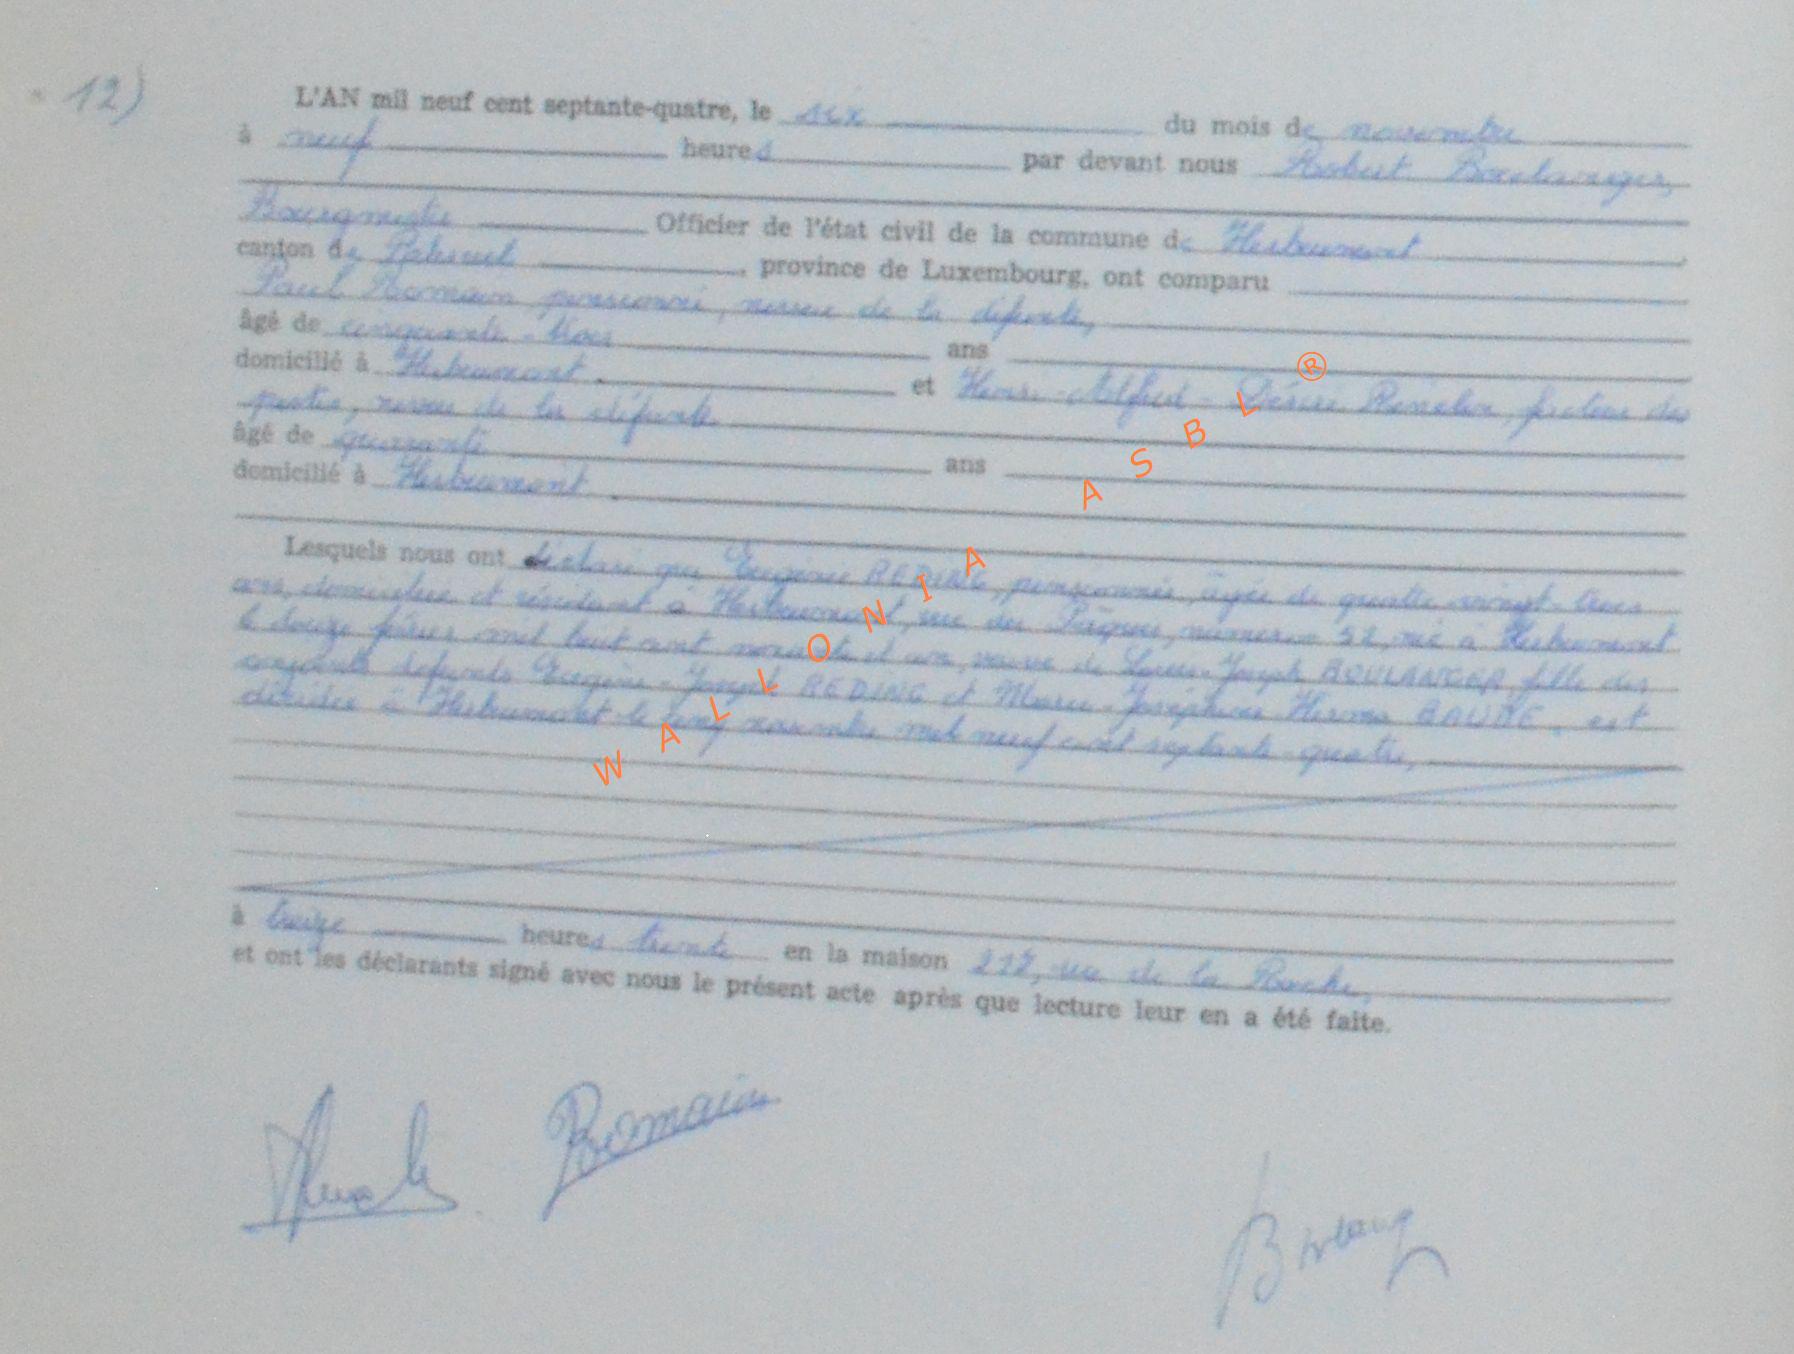 12)
L'AN mil neuf cent septante-quatre, le six du mois de novembre
à neuf heures par devant nous Robert Boulanger,
Bourgmestre Officier de l'état civil de la commune de Herbeumont
canton de Paliseul, province de Luxembourg, ont comparu
Paul Romain pensionné, neveu de la défunte,
âgé de cinquante-trois ans
domicilié à Herbeumont et Henri-Alfred-Désiré facteur des
postes, neveu de la défunte
âgé de quarante ans
domicilié à Herbeumont
Lesquels nous ont déclaré que Eugénie REDING, pensionnée, âgée de quatre vingt-trois
ans, domiciliée et résidant à Herbeumont, rue des numéro 52, née à Herbeumont
le douze février mil huit cent nonante et un, veuve de Louis-Joseph BOULANGER, fille des
conjoints défunts Eugène-Joseph REDING et Marie-Joséphine BAURE, est
décédée à Herbeumont le cinq novembre mil neuf cent septante-quatre,
à treize heures trente en la maison 212, rue de la Roche,
et ont les déclarants signé avec nous le présent acte après que lecture leur en a été faite.
Romain
WALLONIA ASBL ®